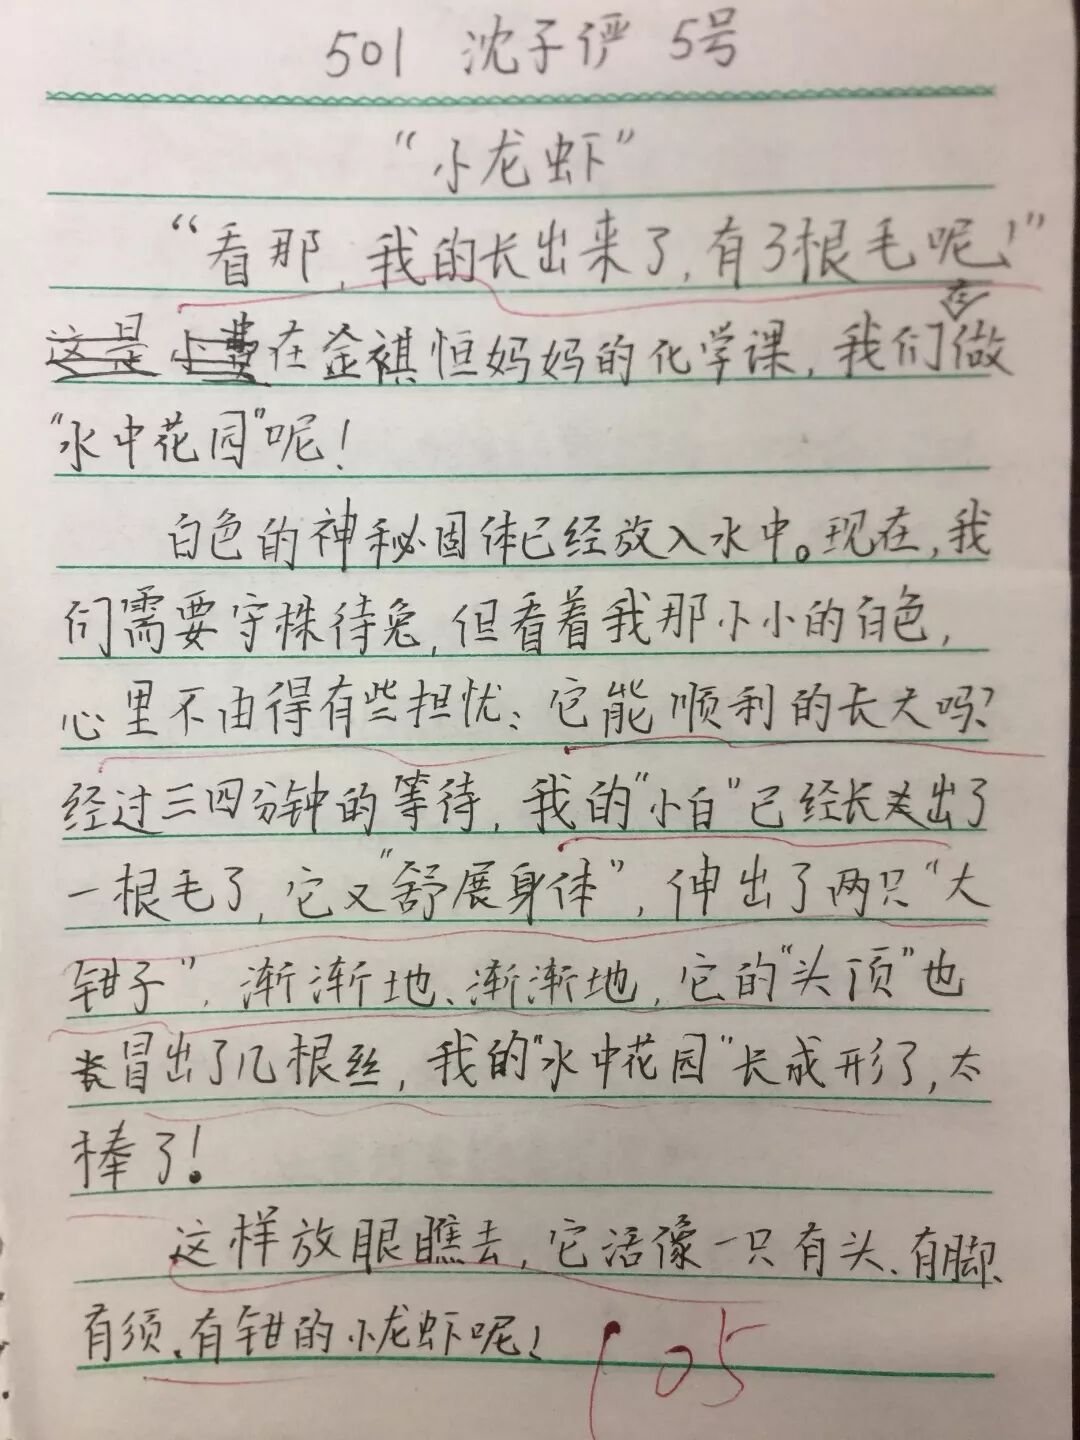 501 沈子俨 5号
“小龙虾”
“看那，我的长出来了，有了根毛呢！”
在
在金祺恒妈妈的化学课，我们做
“水中花园”呢！
白色的神秘固体已经放入水中。现在，我
们需要守株待兔，但看着我那小小的白色，
心里不由得有些担忧：它能顺利的长大吗？
经过三四分钟的等待，我的“小白”已经长出了
一根毛了，它又“舒展身体”，伸出了两只“大
钳子”，渐渐地、渐渐地，它的“头顶”也
冒出了几根丝，我的“水中花园”长成形了，太
棒了！
这样放眼瞧去，它活像一只有头、有脚、
有须、有钳的小龙虾呢！
105